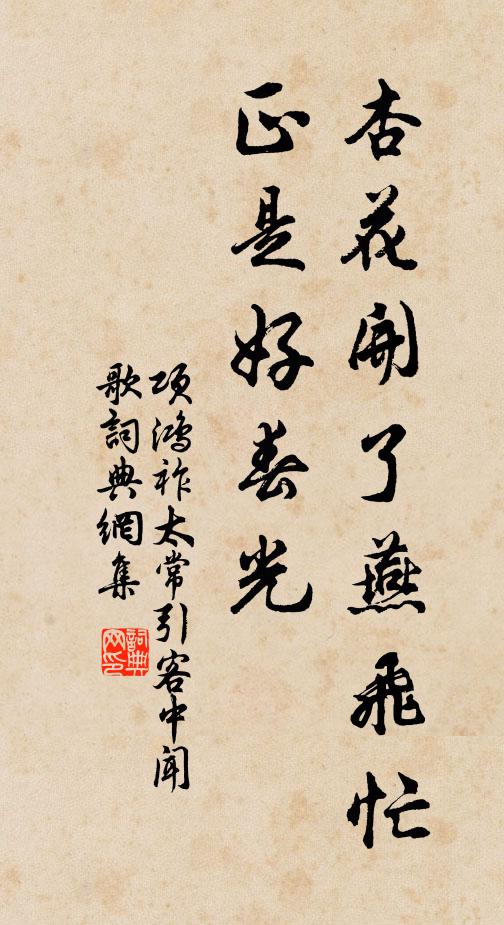 杏花開了燕飛忙
正是好春光
項鴻祚太常引客中聞
歌詞典網集
詞典網印